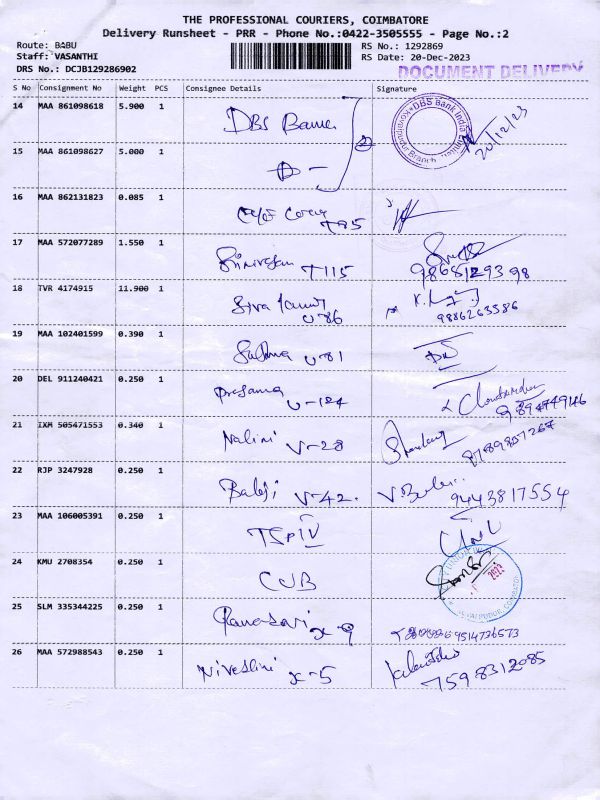 THE PROFESSIONAL COURIERS, COIMBATORE
Delivery Runsheet - PRR - Phone No.:0422-3505555 - Page No.:2
Route: BABU
Staff: VASANTHI
DRS No.: DCJB129286902
RS No.: 1292869
RS Date: 20-Dec-2023
DOCUMENT DELIVERY
S No Consignment No Weight PCS Consignee Details Signature
14 MAA 861098618 5.900 1 DBS Bank
DBS Bank India Limited
20/12/23
15 MAA 861098627 5.000 1
16 MAA 862131823 0.085 1
17 MAA 572077289 1.550 1 Srinivasan T115
18 TVR 4174915 11.900 1 Siva U-86
9886263586
19 MAA 102401599 0.390 1 U-81
20 DEL 911240421 0.250 1 Prasanna U-124
21 IXM 505471553 0.340 1 Nalini V-28
8789857267
22 RJP 3247928 0.250 1 Balaji V-42. 9443817554
23 MAA 106005391 0.250 1
24 KMU 2708354 0.250 1 CUB
2023
25 SLM 335344225 0.250 1 x-9
9514736573
26 MAA 572988543 0.250 1 x-5
7598312085